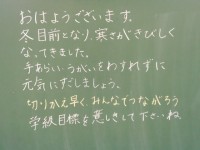 おはようございます。
冬目前となり、寒さがきびしく
なってきました。
手あらい・うがいをわすれずに
元気にだしましょう。
切りかえ早く、みんなでつながろう
学級目標を意しきして下さいね。